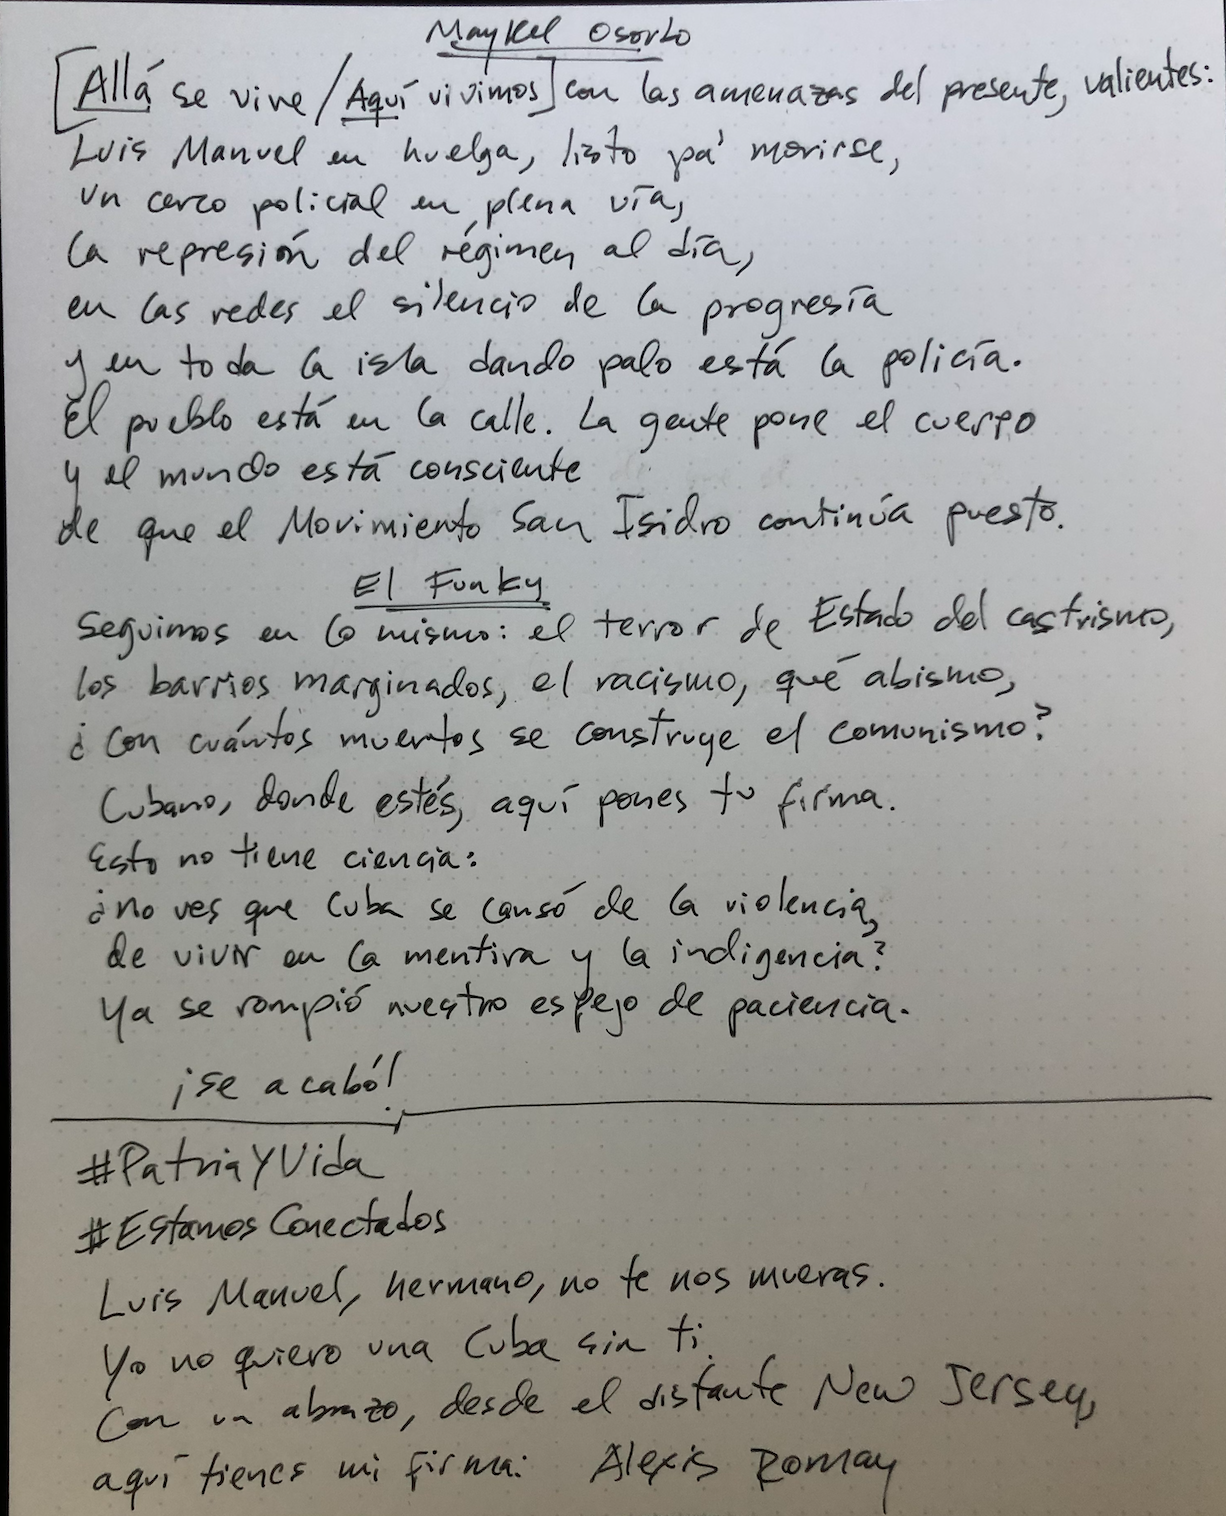 Maykel Osorbo
[Allá se vive / Aquí vivimos] con las amenazas del presente, valientes:
Luis Manuel en huelga, listo pa' morirse,
un cerco policial en plena vía,
la represión del régimen al día,
en las redes el silencio de la progresía
y en toda la isla dando palo está la policía.
El pueblo está en la calle. La gente pone el cuerpo
y el mundo está consciente
de que el Movimiento San Isidro continúa puesto.
El Funky
Seguimos en lo mismo: el terror de Estado del castrismo,
los barrios marginados, el racismo, qué abismo,
¿Con cuántos muertos se construye el comunismo?
Cubano, donde estés, aquí pones tu firma.
Esto no tiene ciencia:
¿no ves que Cuba se cansó de la violencia,
de vivir en la mentira y la indigencia?
Ya se rompió nuestro espejo de paciencia.
¡Se acabó!
#PatriaYVida
#EstamosConectados
Luis Manuel, hermano, no te nos mueras.
Yo no quiero una Cuba sin ti.
Con un abrazo, desde el distante New Jersey,
aquí tienes mi firma: Alexis Romay